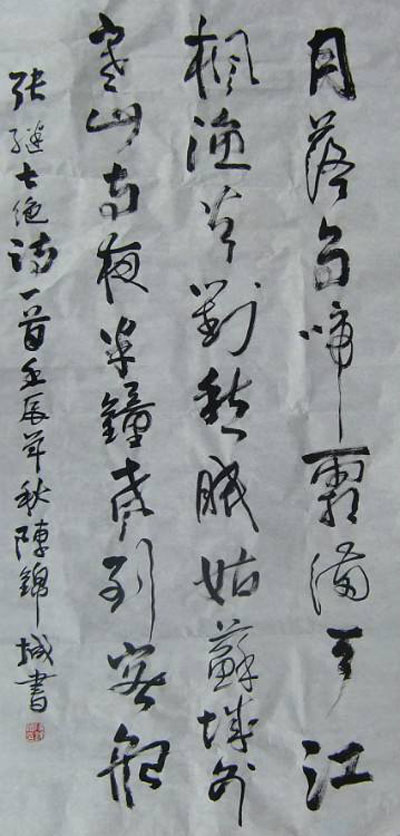 月落乌啼霜满天江
枫渔火對愁眠姑蘇城外
寒山寺夜半鐘声到客船
张继七绝诗一首壬辰年秋陳錦城書